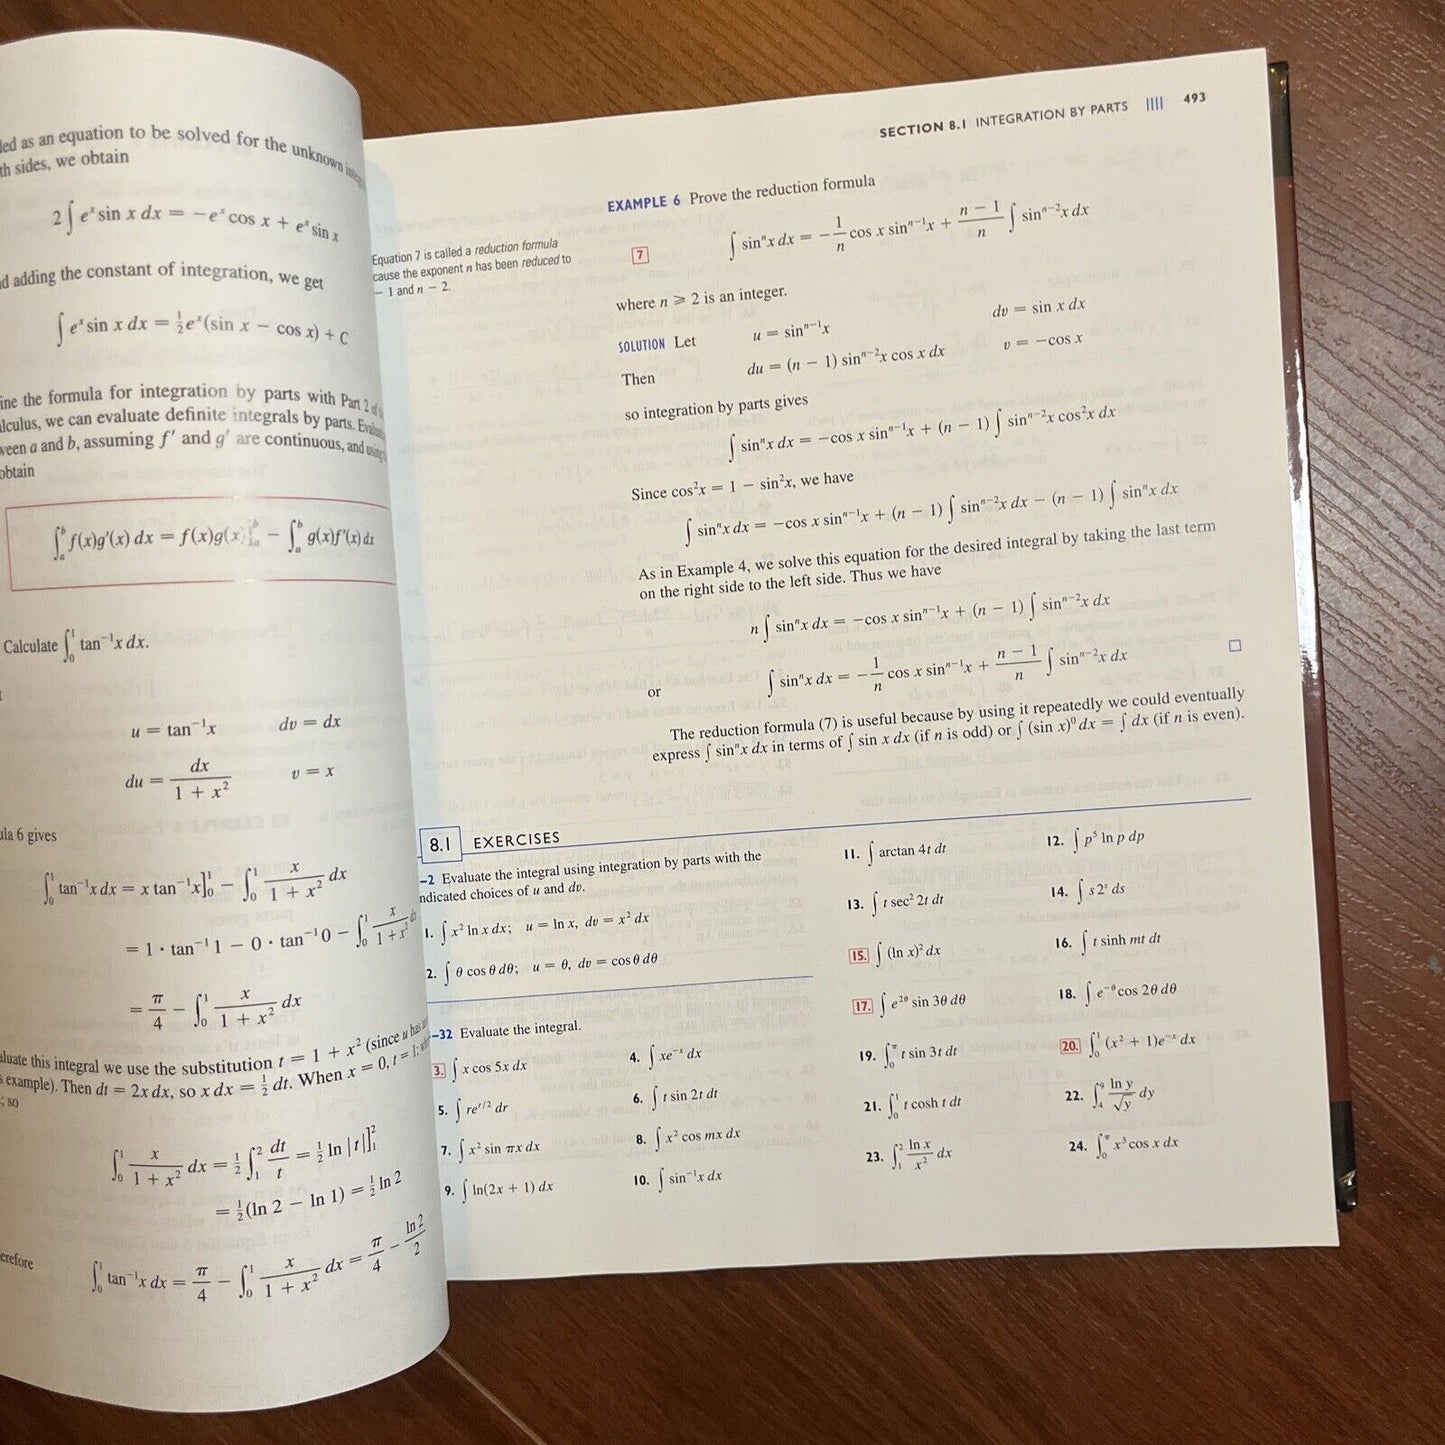 led as an equation to be solved for the unknown
th sides, we obtain
2 ∫ eˣ sin x dx = −eˣ cos x + eˣ sin x
d adding the constant of integration, we get
∫ eˣ sin x dx = ½eˣ(sin x − cos x) + C
ine the formula for integration by parts with Part 2
lculus, we can evaluate definite integrals by parts.
ween a and b, assuming f′ and g′ are continuous, and
obtain
∫ₐᵇ f(x)g′(x) dx = f(x)g(x)]ₐᵇ − ∫ₐᵇ g(x)f′(x) dx
Calculate ∫₀¹ tan⁻¹x dx.
u = tan⁻¹x dv = dx
du = dx/(1 + x²) v = x
ula 6 gives
∫₀¹ tan⁻¹x dx = x tan⁻¹x]₀¹ − ∫₀¹ x/(1 + x²) dx
= 1 · tan⁻¹1 − 0 · tan⁻¹0 − ∫₀¹ x/(1 + x²) dx
= π/4 − ∫₀¹ x/(1 + x²) dx
aluate this integral we use the substitution t = 1 + x² (since u has
example). Then dt = 2x dx, so x dx = ½ dt. When x = 0, t = 1;
; so
∫₀¹ x/(1 + x²) dx = ½ ∫₁² dt/t = ½ ln |t|]₁²
= ½(ln 2 − ln 1) = ½ ln 2
erefore
∫₀¹ tan⁻¹x dx = π/4 − ∫₀¹ x/(1 + x²) dx = π/4 − ln 2/2
SECTION 8.1 INTEGRATION BY PARTS |||| 493
EXAMPLE 6 Prove the reduction formula
7 ∫ sinⁿx dx = −1/n cos x sinⁿ⁻¹x + (n − 1)/n ∫ sinⁿ⁻²x dx
Equation 7 is called a reduction formula
cause the exponent n has been reduced to
− 1 and n − 2.
where n ⩾ 2 is an integer.
SOLUTION Let u = sinⁿ⁻¹x dv = sin x dx
Then du = (n − 1) sinⁿ⁻²x cos x dx v = −cos x
so integration by parts gives
∫ sinⁿx dx = −cos x sinⁿ⁻¹x + (n − 1) ∫ sinⁿ⁻²x cos²x dx
Since cos²x = 1 − sin²x, we have
∫ sinⁿx dx = −cos x sinⁿ⁻¹x + (n − 1) ∫ sinⁿ⁻²x dx − (n − 1) ∫ sinⁿx dx
As in Example 4, we solve this equation for the desired integral by taking the last term
on the right side to the left side. Thus we have
n ∫ sinⁿx dx = −cos x sinⁿ⁻¹x + (n − 1) ∫ sinⁿ⁻²x dx
or ∫ sinⁿx dx = −1/n cos x sinⁿ⁻¹x + (n − 1)/n ∫ sinⁿ⁻²x dx
The reduction formula (7) is useful because by using it repeatedly we could eventually
express ∫ sinⁿx dx in terms of ∫ sin x dx (if n is odd) or ∫ (sin x)⁰ dx = ∫ dx (if n is even).
8.1 EXERCISES
–2 Evaluate the integral using integration by parts with the
ndicated choices of u and dv.
1. ∫ x² ln x dx; u = ln x, dv = x² dx
2. ∫ θ cos θ dθ; u = θ, dv = cos θ dθ
–32 Evaluate the integral.
3. ∫ x cos 5x dx 4. ∫ xe⁻ˣ dx
5. ∫ re^(r/2) dr 6. ∫ t sin 2t dt
7. ∫ x² sin πx dx 8. ∫ x² cos mx dx
9. ∫ ln(2x + 1) dx 10. ∫ sin⁻¹x dx
11. ∫ arctan 4t dt 12. ∫ p⁵ ln p dp
13. ∫ t sec² 2t dt 14. ∫ s 2ˢ ds
15. ∫ (ln x)² dx 16. ∫ t sinh mt dt
17. ∫ e^(2θ) sin 3θ dθ 18. ∫ e^(−θ) cos 2θ dθ
19. ∫₀^π t sin 3t dt 20. ∫₀¹ (x² + 1)e⁻ˣ dx
21. ∫₀¹ t cosh t dt 22. ∫₄⁹ ln y/√y dy
23. ∫₁² ln x/x² dx 24. ∫₀^π x³ cos x dx